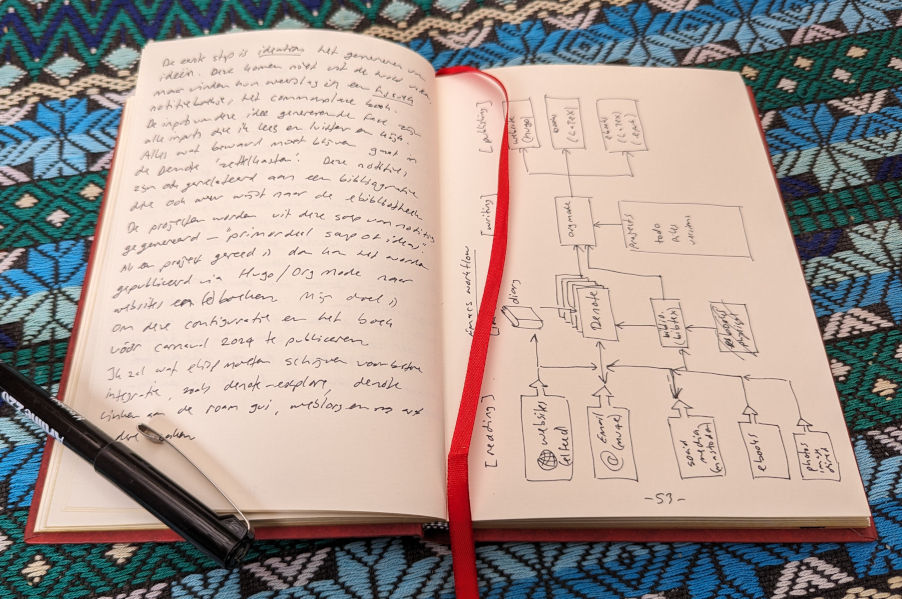 De eerste stap is ideation, het genereren van
ideeën. Deze komen niet uit de wolk
maar vinden hun weerslag in een fysiek
notitieboekje, het commonplace book.
De input van deze idee genererende fase zijn
alle inputs die ik lees en luister en kijk.
Alles wat bewaard moet blijven gaat in
de Denote 'zettelkasten'. Deze notities
zijn ook gerelateerd aan een bibliografie
die ook weer wijst naar de ebibliotheek
De projecten worden uit deze soep van notities
gegenereerd - "primordeel soup of ideas".
Als een project gereed is dan kan het worden
gepubliceerd in Hugo/Org Mode naar
websites en (e)boeken. Mijn doel is
om deze configuratie en het boek
vóór carnaval 2024 te publiceren
Ik zal wat elisp moeten schrijven voor betere
integratie, zoals denote-explore, denote
linken aan de roam gui, weblorg en nog wat
deze
Emacs workflow
[publishing]
website
(Hugo)
books
(LaTeX)
ebooks
[writing]
orgmode
Projects
todo
files
versions
diary
Denote
biblio.
bibtex
ebooks
[reading]
websites
(elfeed)
@ Email
(mu4e)
social
media
(mastodon)
ebooks
photos
image
dired
- 53 -